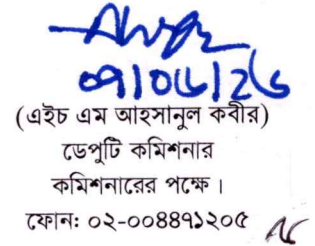 ০৭/০৬/২৬
(এইচ এম আহসানুল কবীর)
ডেপুটি কমিশনার
কমিশনারের পক্ষে।
ফোন: ০২-০০৪৪৭১২০৫